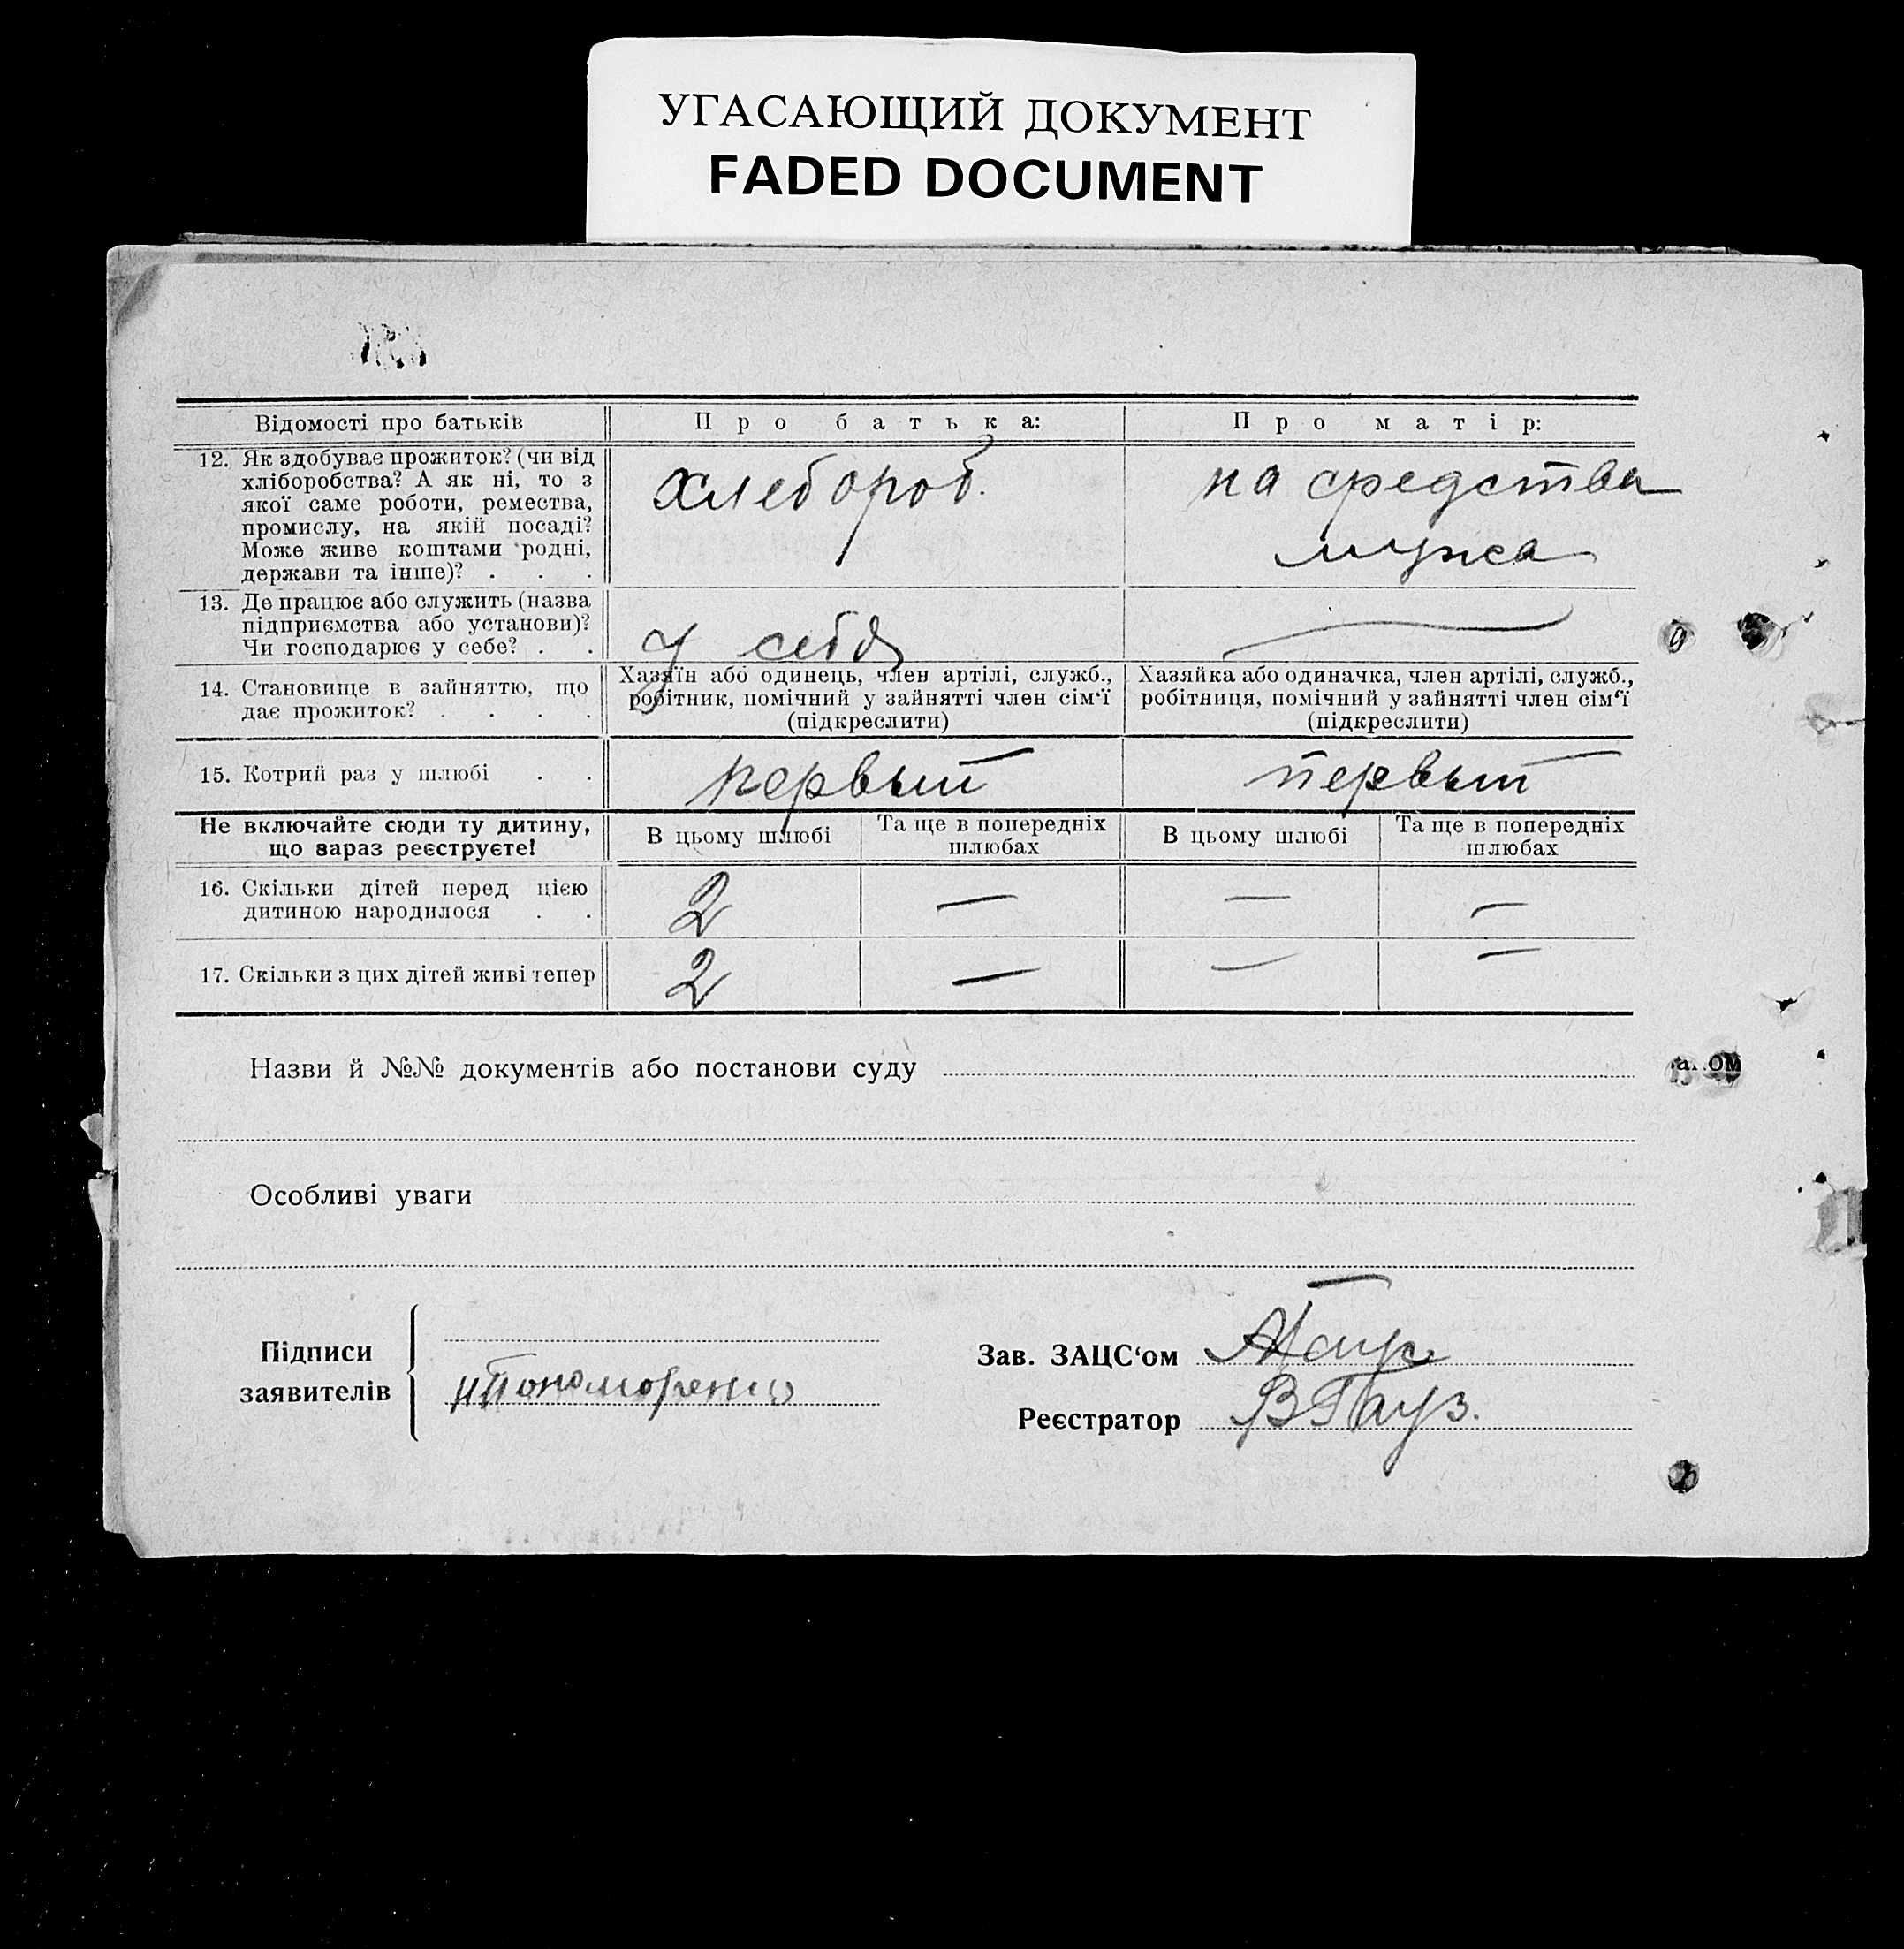 УГАСАЮЩИЙ ДОКУМЕНТ
FADED DOCUMENT
Відомості про батьків
Про батька:
Про матір:
12. Як здобуває прожиток? (чи від
хліборобства? А як ні, то з
якої саме роботи, ремества,
промислу, на якій посаді?
Може живе коштами родні,
держави та інше)? . . .
хлебороб.
на средства
мужа
13. Де працює або служить (назва
підприємства або установи)?
Чи господарює у себе? . .
у себя
14. Становище в зайняттю, що
дає прожиток? . . . .
Хазяїн або одинець, член артілі, служб.,
робітник, помічний у зайнятті член сім‘ї
(підкреслити)
Хазяйка або одиначка, член артілі, служб.,
робітниця, помічний у зайнятті член сім‘ї
(підкреслити)
15. Котрий раз у шлюбі . .
первый
первый
Не включайте сюди ту дитину,
що зараз реєструєте!
В цьому шлюбі
Та ще в попередніх
шлюбах
В цьому шлюбі
Та ще в попередніх
шлюбах
16. Скільки дітей перед цією
дитиною народилося . .
2 — — —
17. Скільки з цих дітей живі тепер
2 — — —
Назви й №№ документів або постанови суду
Особливі уваги
Підписи
заявителів
Зав. ЗАЦС‘ом
Реєстратор